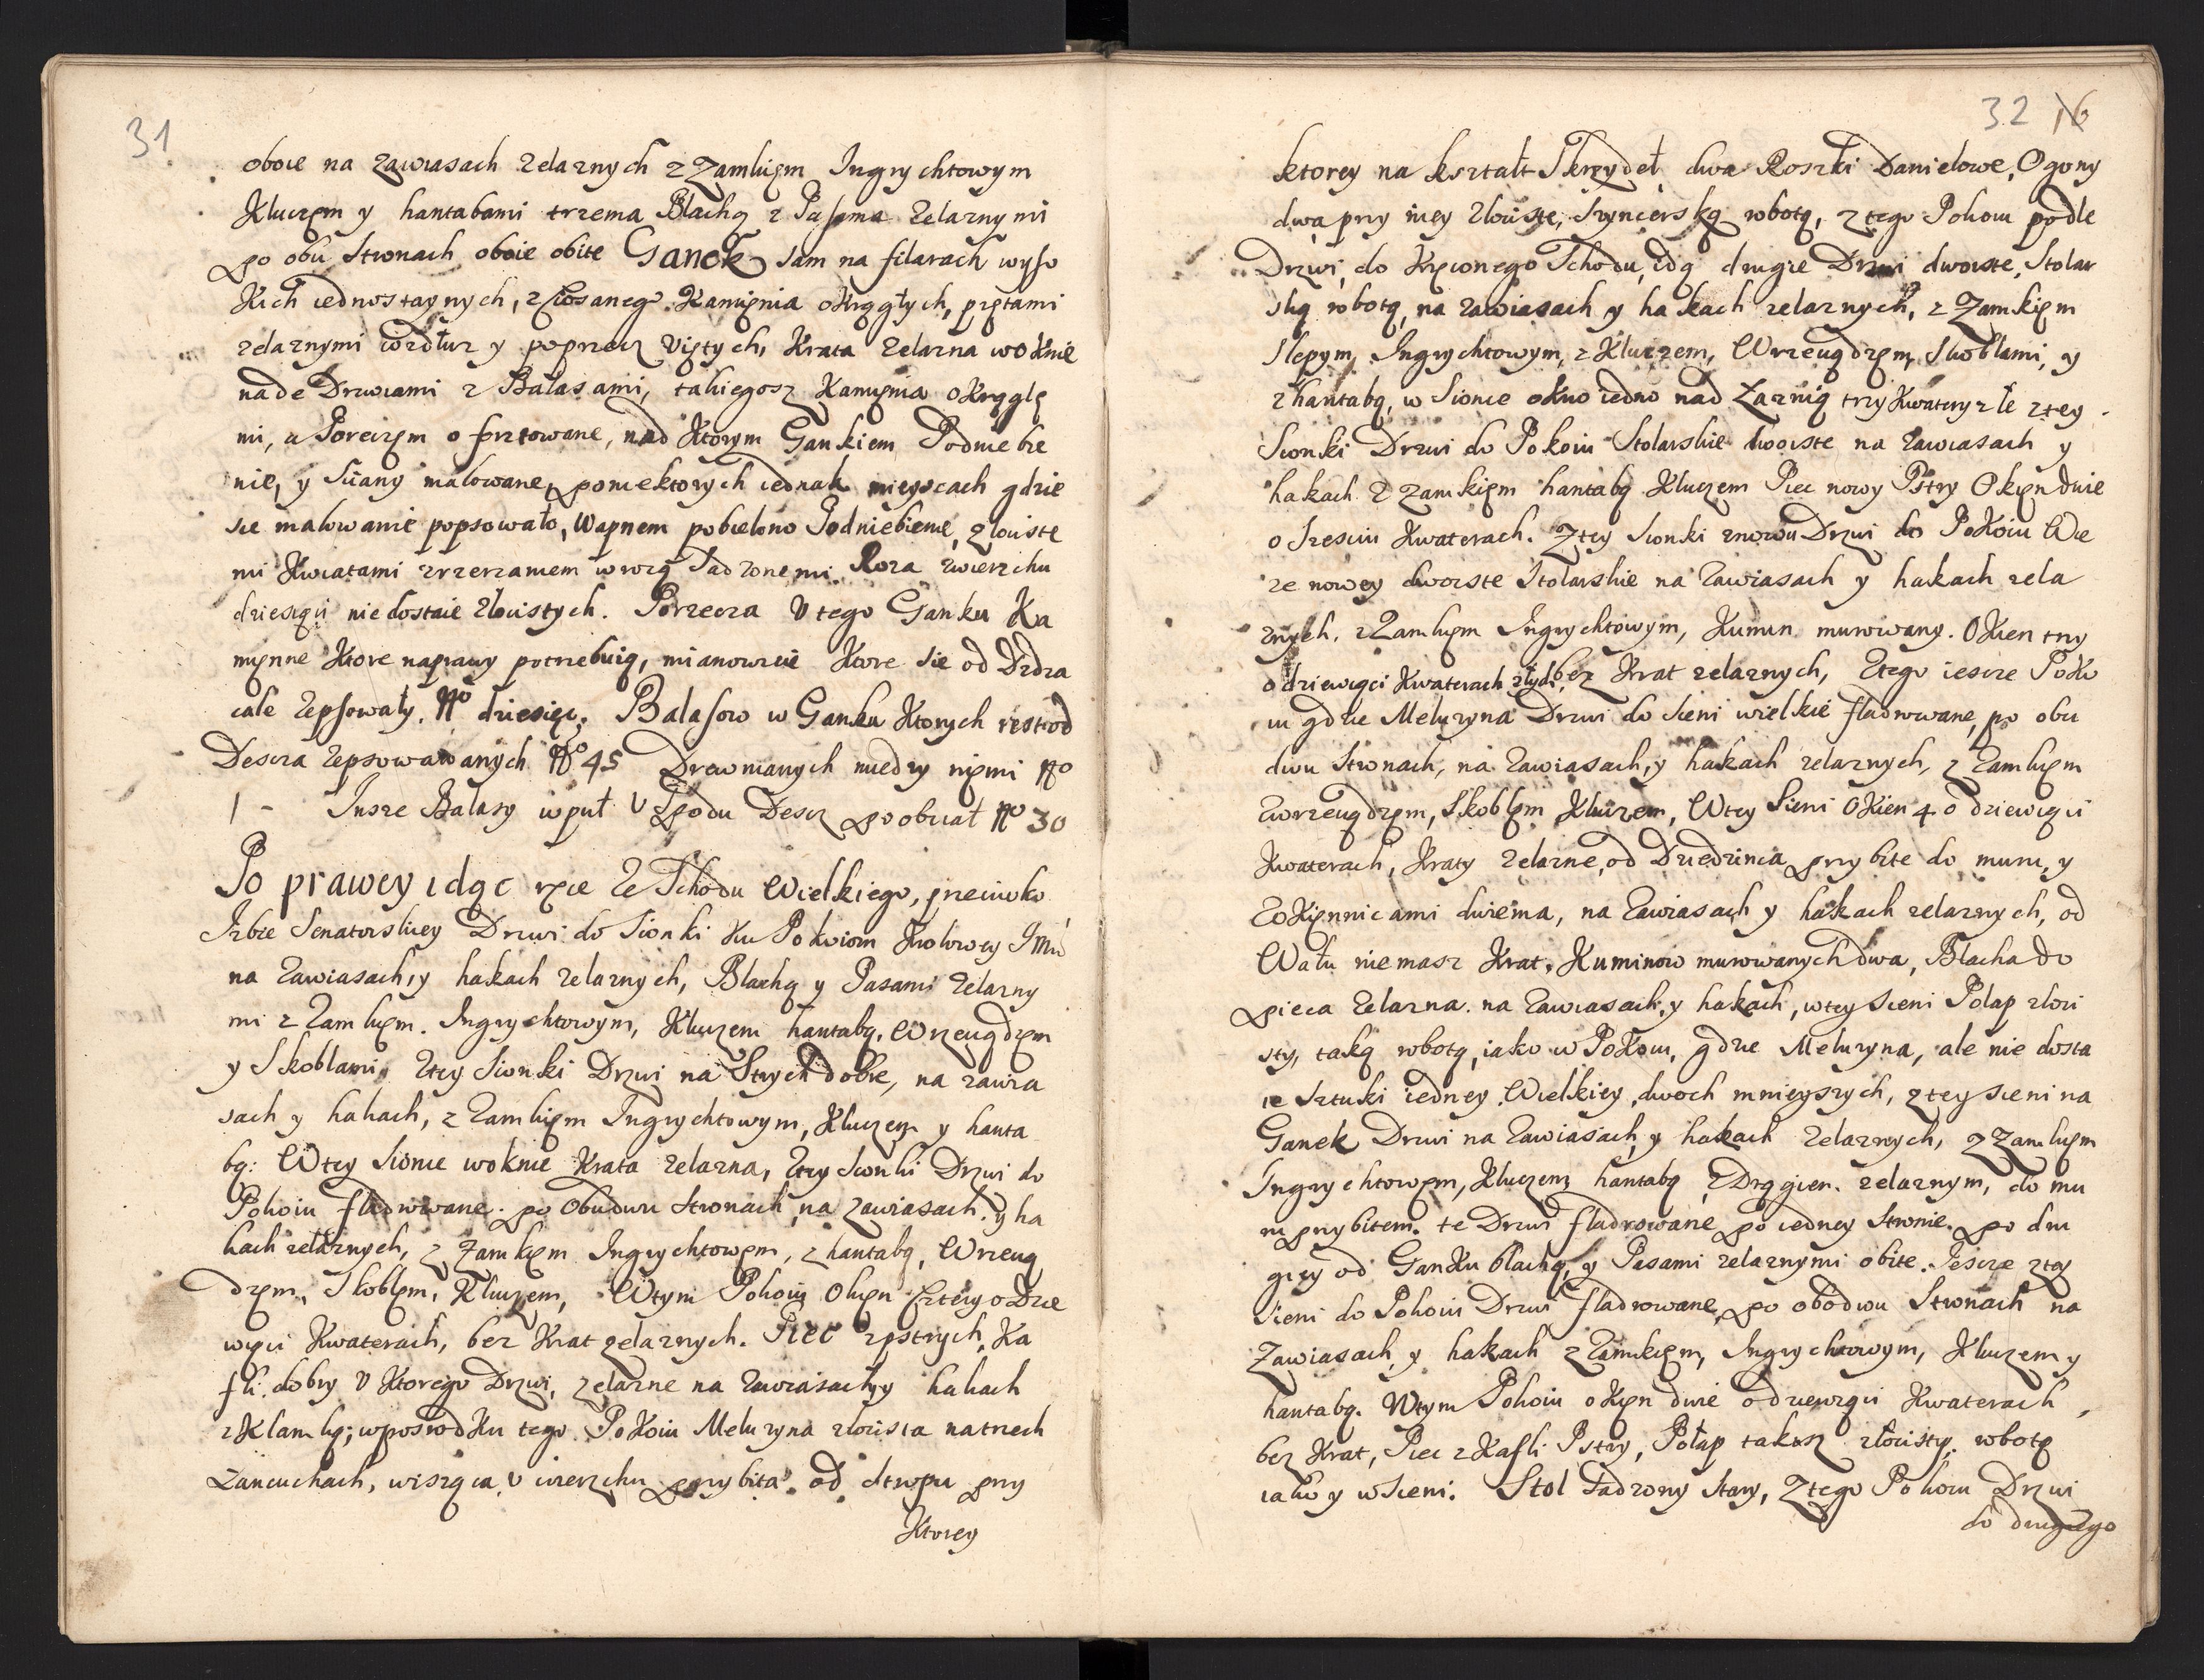 31
oboie na zawiasach zelaznych z Zamkięm Ingrychtowym
Kluczęm y hantabami trzema Blachą z Pasma zelaznymi
po obu Stronach oboie obite Ganek sam na filarach wyso
kich iednostaynych, z Ciosanego Kamięnia okrągłych, prętami
zelaznymi wzdłuz y poprzecz Uiętych, Krata zelazna w oknie
nade Drzwiami z Balasami, takiegosz Kamięnia okrągłę
mi, a Poręczęm ofsztowane, nad Ktorym Gankiem Podniebie
nie, y Sciany malowane, poniektorych iednak mieyscach gdzie
sie malowanie popsowało, Wapnem pobielono Podniebienie, złociste
mi Kwiatami zrzezaniem w rozą Sadzonemi. Roza zwierzchu
dziesięci niedostaie złocistych. Porzecza U tego Ganku Ka
mięnne Ktore naprawy potrzebuią, mianowicie Ktore sie od Dzdza
cale zepsowały. No dziesięć. Balasow w Ganku Ktorych iest od
Descza zepsowawanych No 45 Drewnianych miedzy nięmi No
1 - Insze Balasy wpuł U Spodu Descz poobciał No 30
Po prawey idąc ręce Ze Schodu Wielkiego, przeciwko
Izbie Senatorskiey Drzwi do Sionki Ku Pokoiom Krolowey JMci
na Zawiasach, y hakach zelaznych, Blachą y Pasami zelazny
mi z Zamkięm Ingrychtowym, Kluczem hantabą, Wrzeciądzęm
y Skoblami, Ztey Sionki Drzwi na Strych dobre, na zawia
sach y hakach, z Zamkięm Ingrychtowym, Kluczem y hanta
bą: Wtey Sionce woknie Krata zelazna, Ztey Sionki Drzwi do
Pokoiu fladrowane po Obudwu Stronach, na zawiasach, y ha
kach zelaznych, z Zamkięm Ingrychtowęm, z hantabą, Wrzecią
dzęm, Skoblęm, Kluczem, Wtym Pokoiu Okięn cztery o Dzie
więci Kwaterach, bez Krat zelaznych. Piec z pstrych, Ka
fli dobry U Ktorego Drzwi, zelazne na zawiasach y hakach
z Klamką; wposrodku tego Pokoiu Meluzyna złocista na trzech
Łancuchach, wisząca, U wierzchu przybita, od stropu przy
Ktorey
32 16
ktorey na kształt Skrzydeł, dwa Roszki Danielowe, Ogony
dwa przy niey złociste, Snycerską robotą, z tego Pokoiu podle
Drzwi, do Kręconego Schodu, idą drugie Drzwi dwoiste, Stolar
ską robotą, na zawiasach y hakach zelaznych, z Zamkięm
Slepym, Ingrychtowym, z Kluczem, Wrzeciądzęm, Skoblami, y
z hantabą, w Sionce okno iedno nad Łaznią trzy Kwatery złe ztey
Sionki Drzwi do Pokoiu Stolarskie dwoiste na zawiasach y
hakach z Zamkięm hantabą Kluczem Piec nowy Pstry Okięn dwie
o Szesciu Kwaterach. Ztey Sionki znowu Drzwi do Pokoiu Wie
ze nowey dwoiste Stolarskie na Zawiasach y hakach zela
znych, z Zamkięm Ingrychtowym, Kumin murowany. Okien trzy
o dziewięci Kwaterach złych, bez Krat zelaznych, Ztego iescze Poko
iu gdzie Meluzyna Drzwi do Sieni wielkie fladrowane, po obu
dwu Stronach, na Zawiasach, y hakach zelaznych, z Zamkięm
Zwrzeciądzęm, Skoblęm Kluczem, Wtey Sieni Okien 4 o dziewięci
Kwaterach, Kraty zelazne, od Dziedzinca przybite do muru, y
Zokięnnicami dwiema, na Zawiasach y hakach zelaznych, od
Wału niemasz Krat, Kuminow murowanych dwa, Blacha do
pieca zelazna na Zawiasach, y hakach, wtey Sieni Połap złoci
sty, taką robotą, iako w Pokoiu, gdzie Meluzyna, ale nie dosta
ie Sztuki iedney Wielkiey, dwoch mnieyszych, ztey Sieni na
Ganek Drzwi na Zawiasach, y hakach zelaznych, z Zamkięm
Ingrychtowęm, Kluczem, hantabą, Z Drągiem zelaznym, do mu
ru przybitem. te Drzwi fladrowane po iedney Stronie, po dru
giey od Ganku blachą, y Pasami zelaznymi obite. Iescze ztey
Sieni do Pokoiu Drzwi fladrowane, po obodwu Stronach na
Zawiasach, y hakach z Zamkięm, Ingrychtowym, Kluczem y
hantabą. Wtym Pokoiu okięn dwie o dziewięci Kwaterach,
bez Krat, Piec z Kafli Pstry, Połap takisz złocisty, robotą
iako y w Sieni. Stol Sadzony Stary, Ztego Pokoiu Drzwi
do drugiego